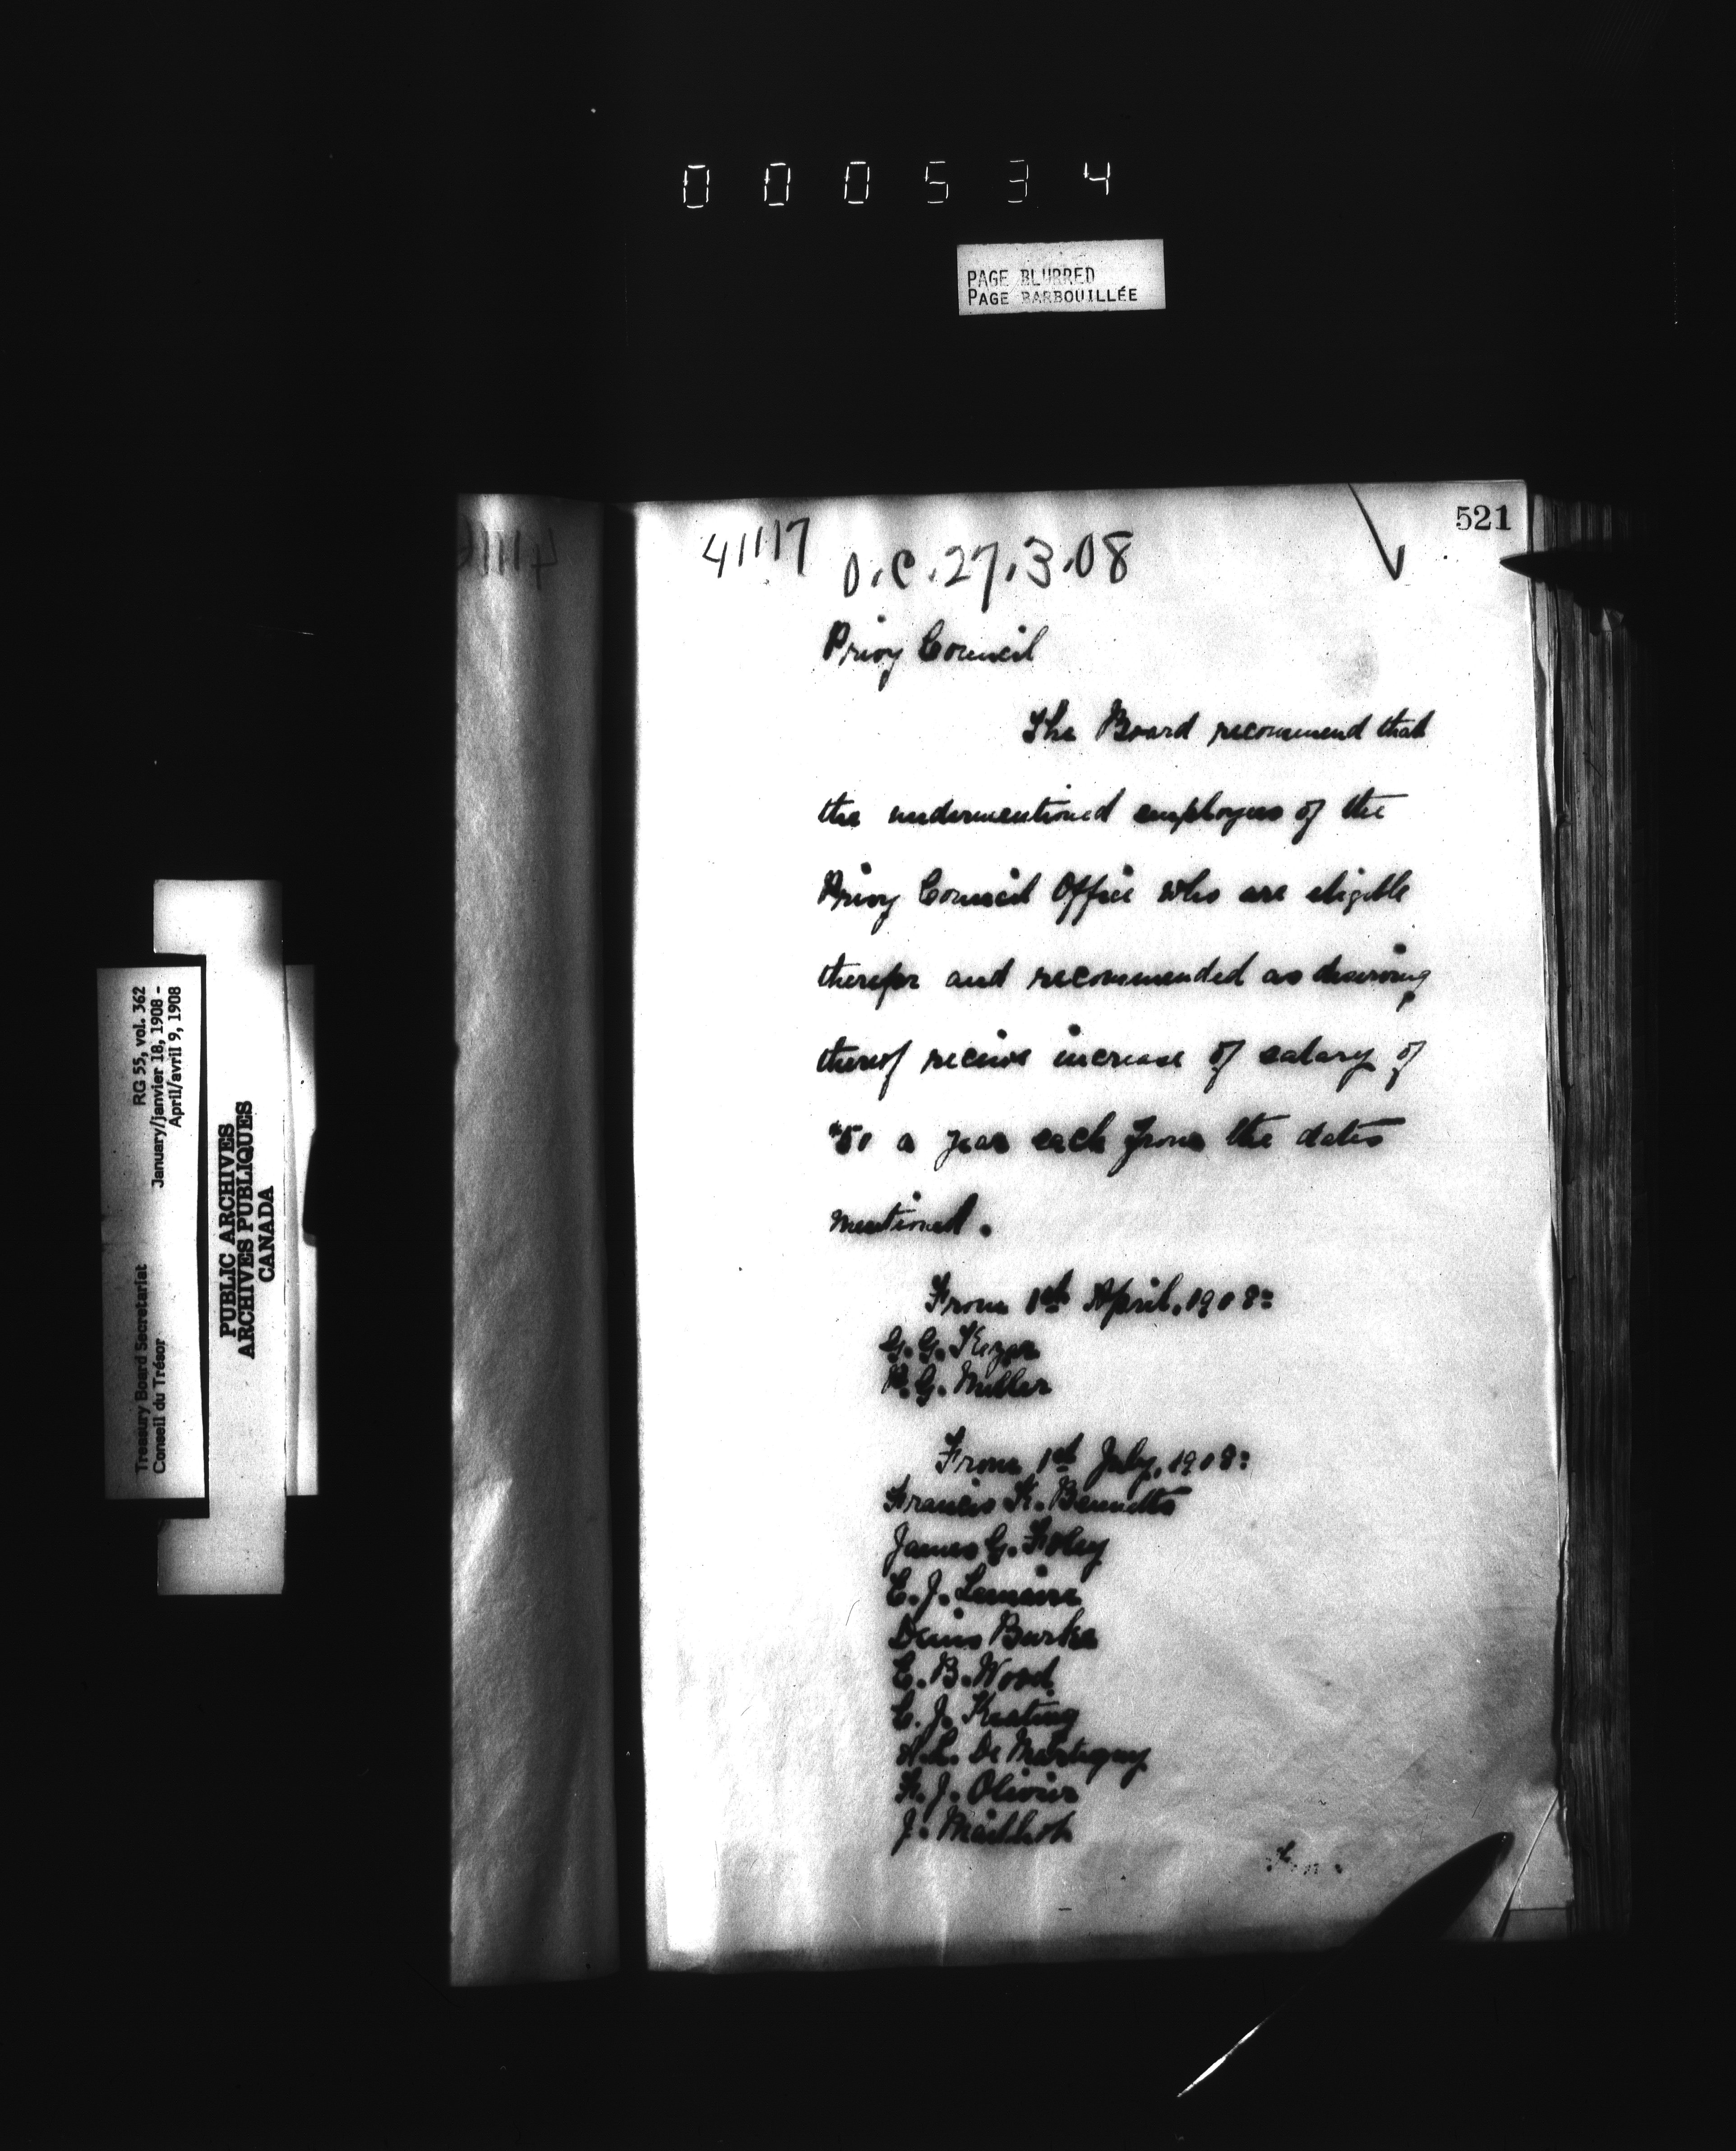 000534
PAGE BLURRED
PAGE BARBOUILLÉE
521
41117 O.C.27.3.08
Privy Council
The Board recommend that
the undermentioned employees of the
Privy Council Office who are eligible
therefor and recommended as deserving
thereof receive increase of salary of
$50 a year each from the dates
mentioned.
From 1st April, 1908:
G. G. Kezar
R. G. Miller
From 1st July, 1908:
Francis K. Bennetts
James G. Foley
E. J. Lemaire
Denis Burke
E. B. Wood
C. J. Keating
A. L. De Martigny
F. J. Olivier
J. Mailhot
Treasury Board Secretariat RG 55, vol. 362
Conseil du Trésor January/janvier 18, 1908 -
April/avril 9, 1908
PUBLIC ARCHIVES
ARCHIVES PUBLIQUES
CANADA